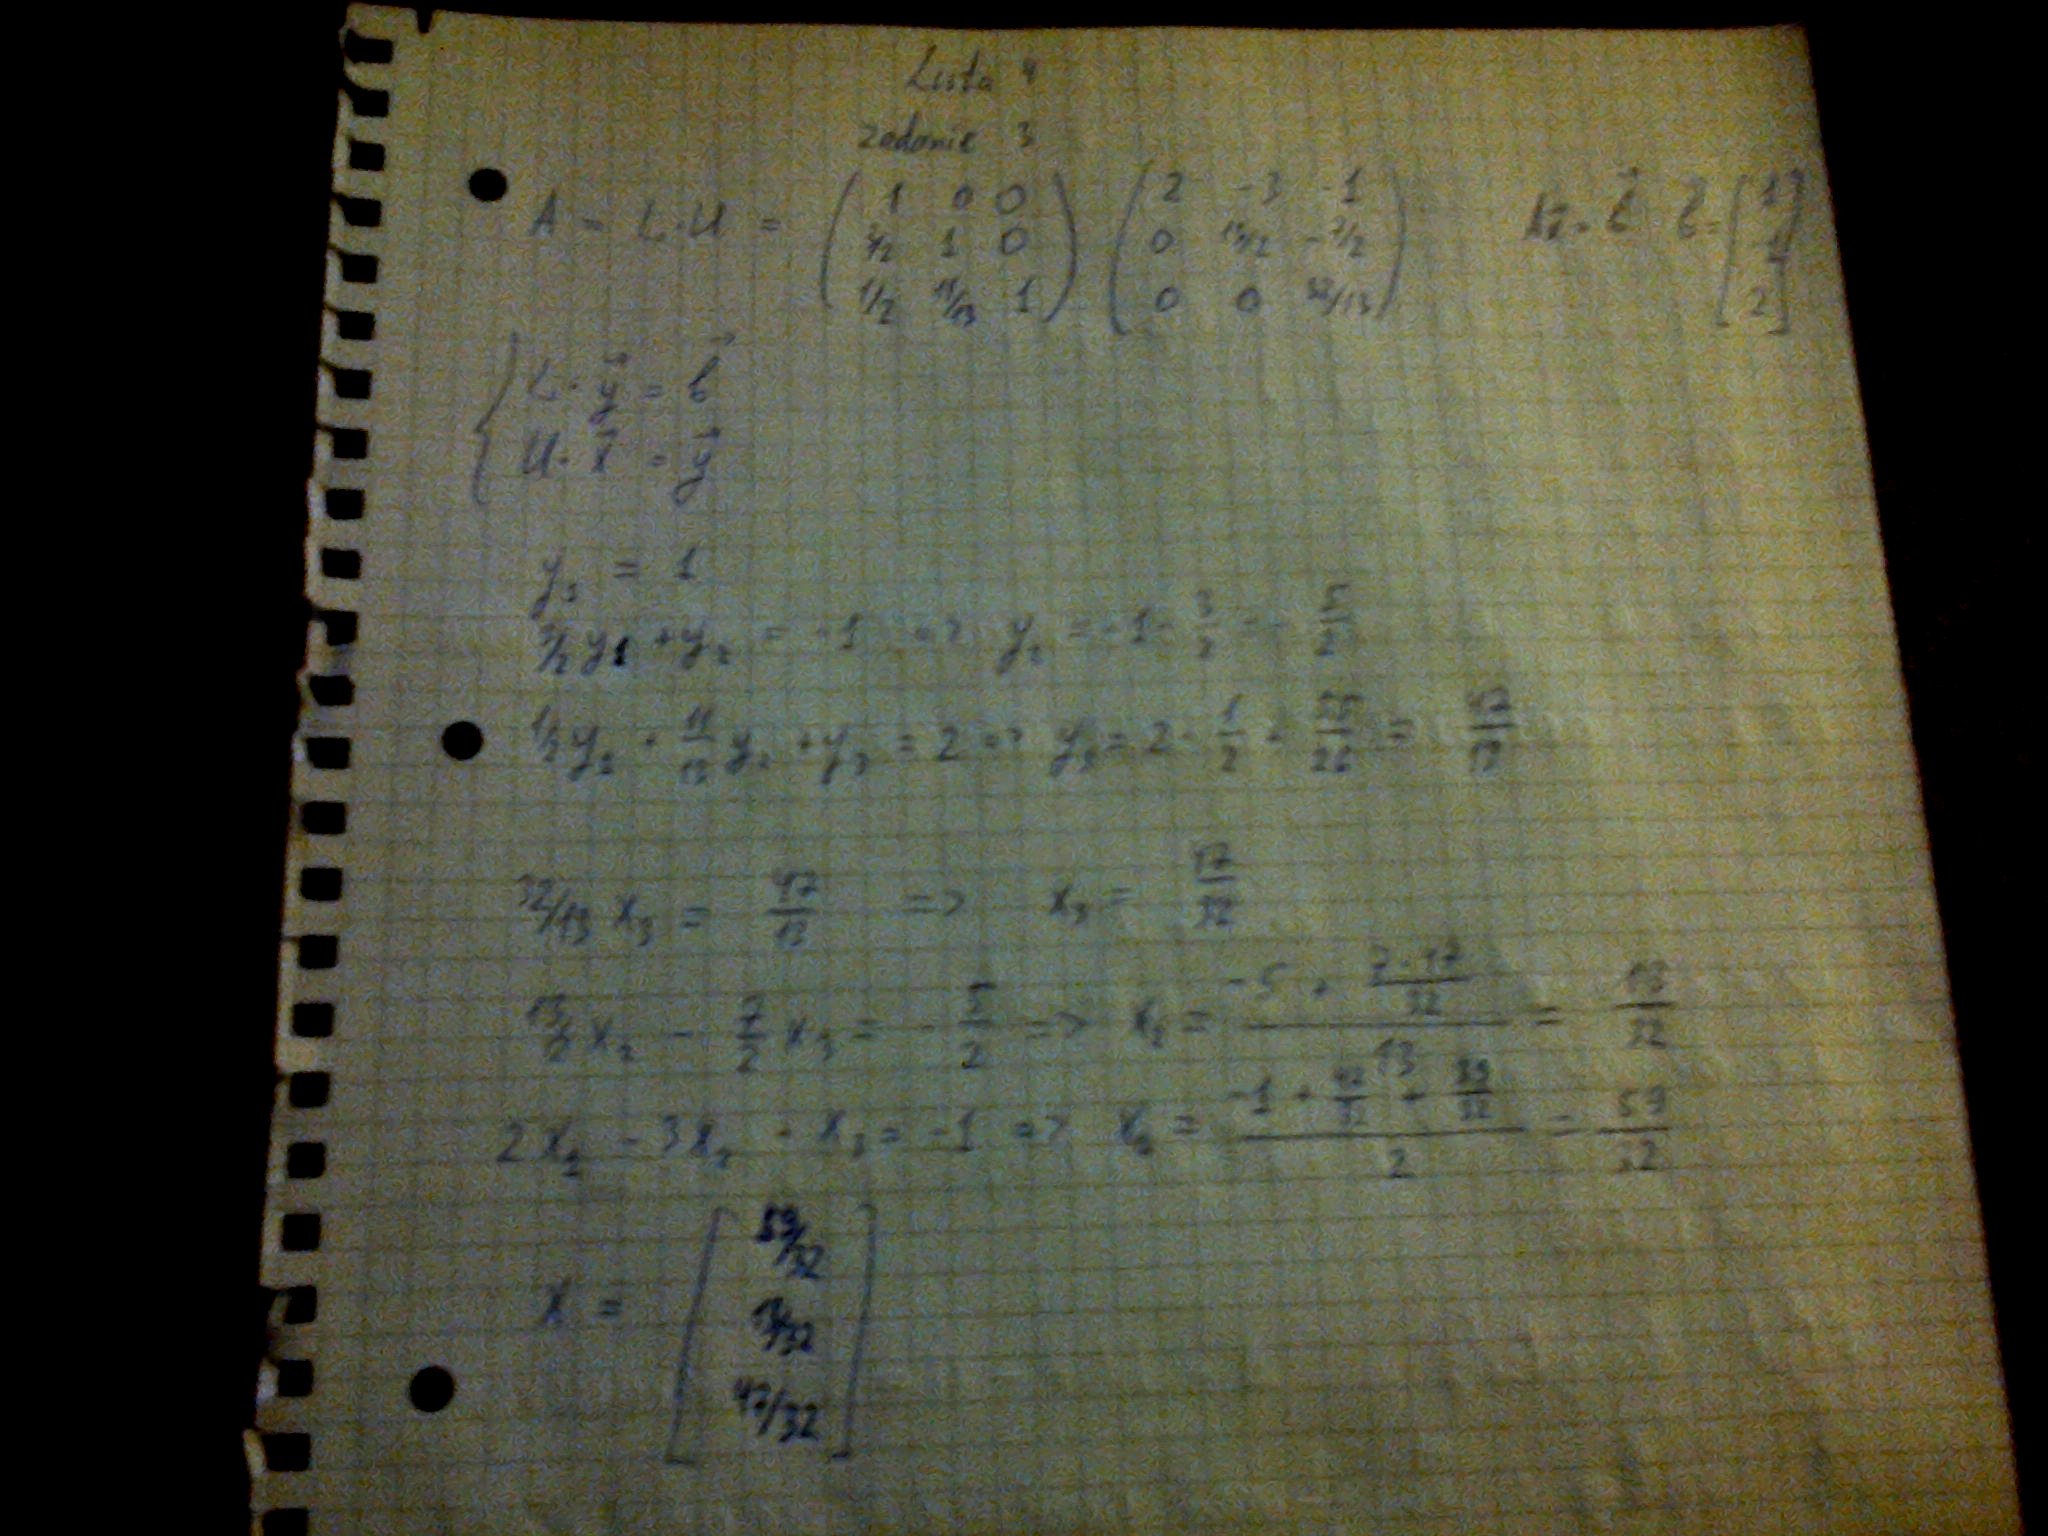 Lista 4
zadanie 3
A = L·U = ( 1 0 0 ) ( 2 -3 -1 )
3/2 1 0 0 13/2 -7/2
1/2 11/13 1 0 0 32/13
Ax = b b = [ 1 -1 2 ]
L·y = b
U·x = y
y1 = 1
3/2 y1 + y2 = -1 => y2 = -1 - 3/2 = - 5/2
1/2 y1 + 11/13 y2 + y3 = 2 => y3 = 2 - 1/2 + 55/26 = 47/13
32/13 x3 = 47/13 => x3 = 47/32
13/2 x2 - 7/2 x3 = - 5/2 => x2 = (-5 + 7·47/32)/13 = 13/32
2x1 - 3x2 - x3 = -1 => = (-1 + 47/32 + 39/32)/2 =
X = [ 59/32
13/32
47/32 ]